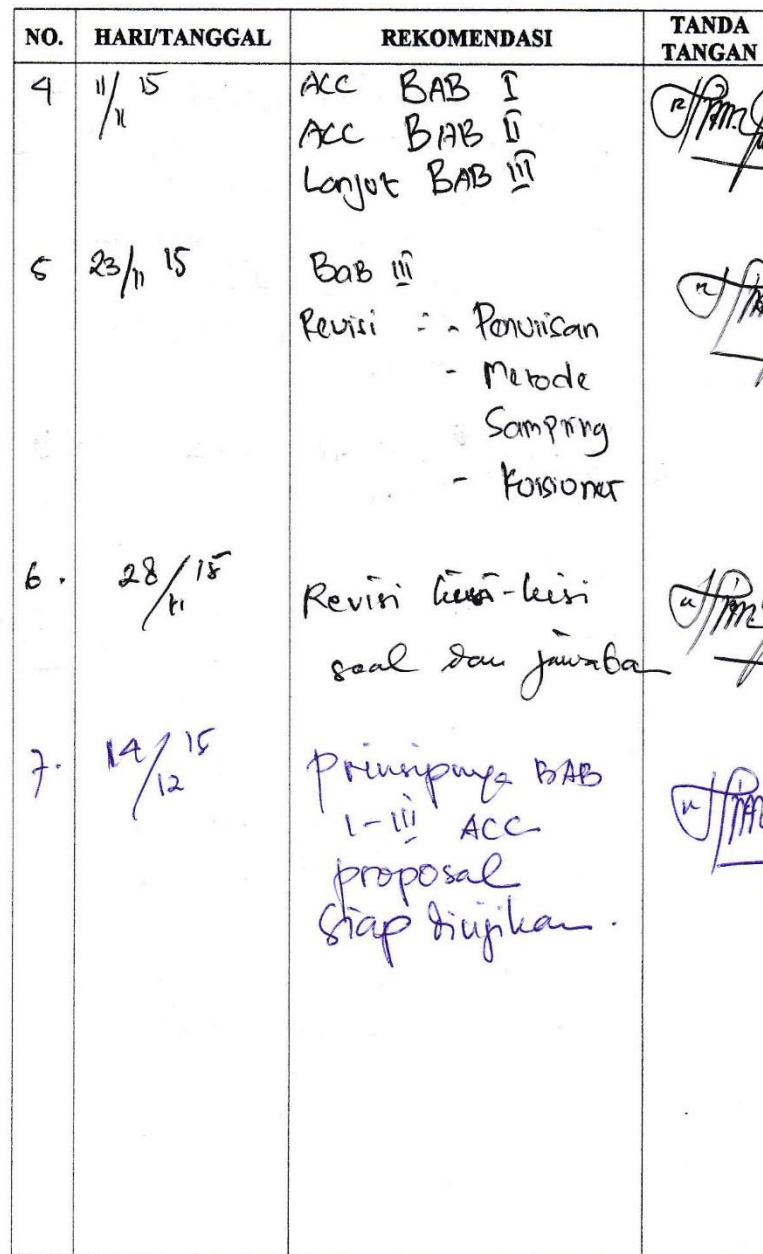 NO. HARI/TANGGAL REKOMENDASI TANDA TANGAN
4 11/11 15 ACC BAB I
ACC BAB II
Lanjut BAB III
5 23/11 15 BaB III
Revisi : - Penulisan
- Metode
Sampling
- Koisioner
6. 28/11 15 Revisi kisi-kisi
soal dan jawaban
7. 14/12 15 prinsipnya BAB
I-III ACC
proposal
siap diujikan.